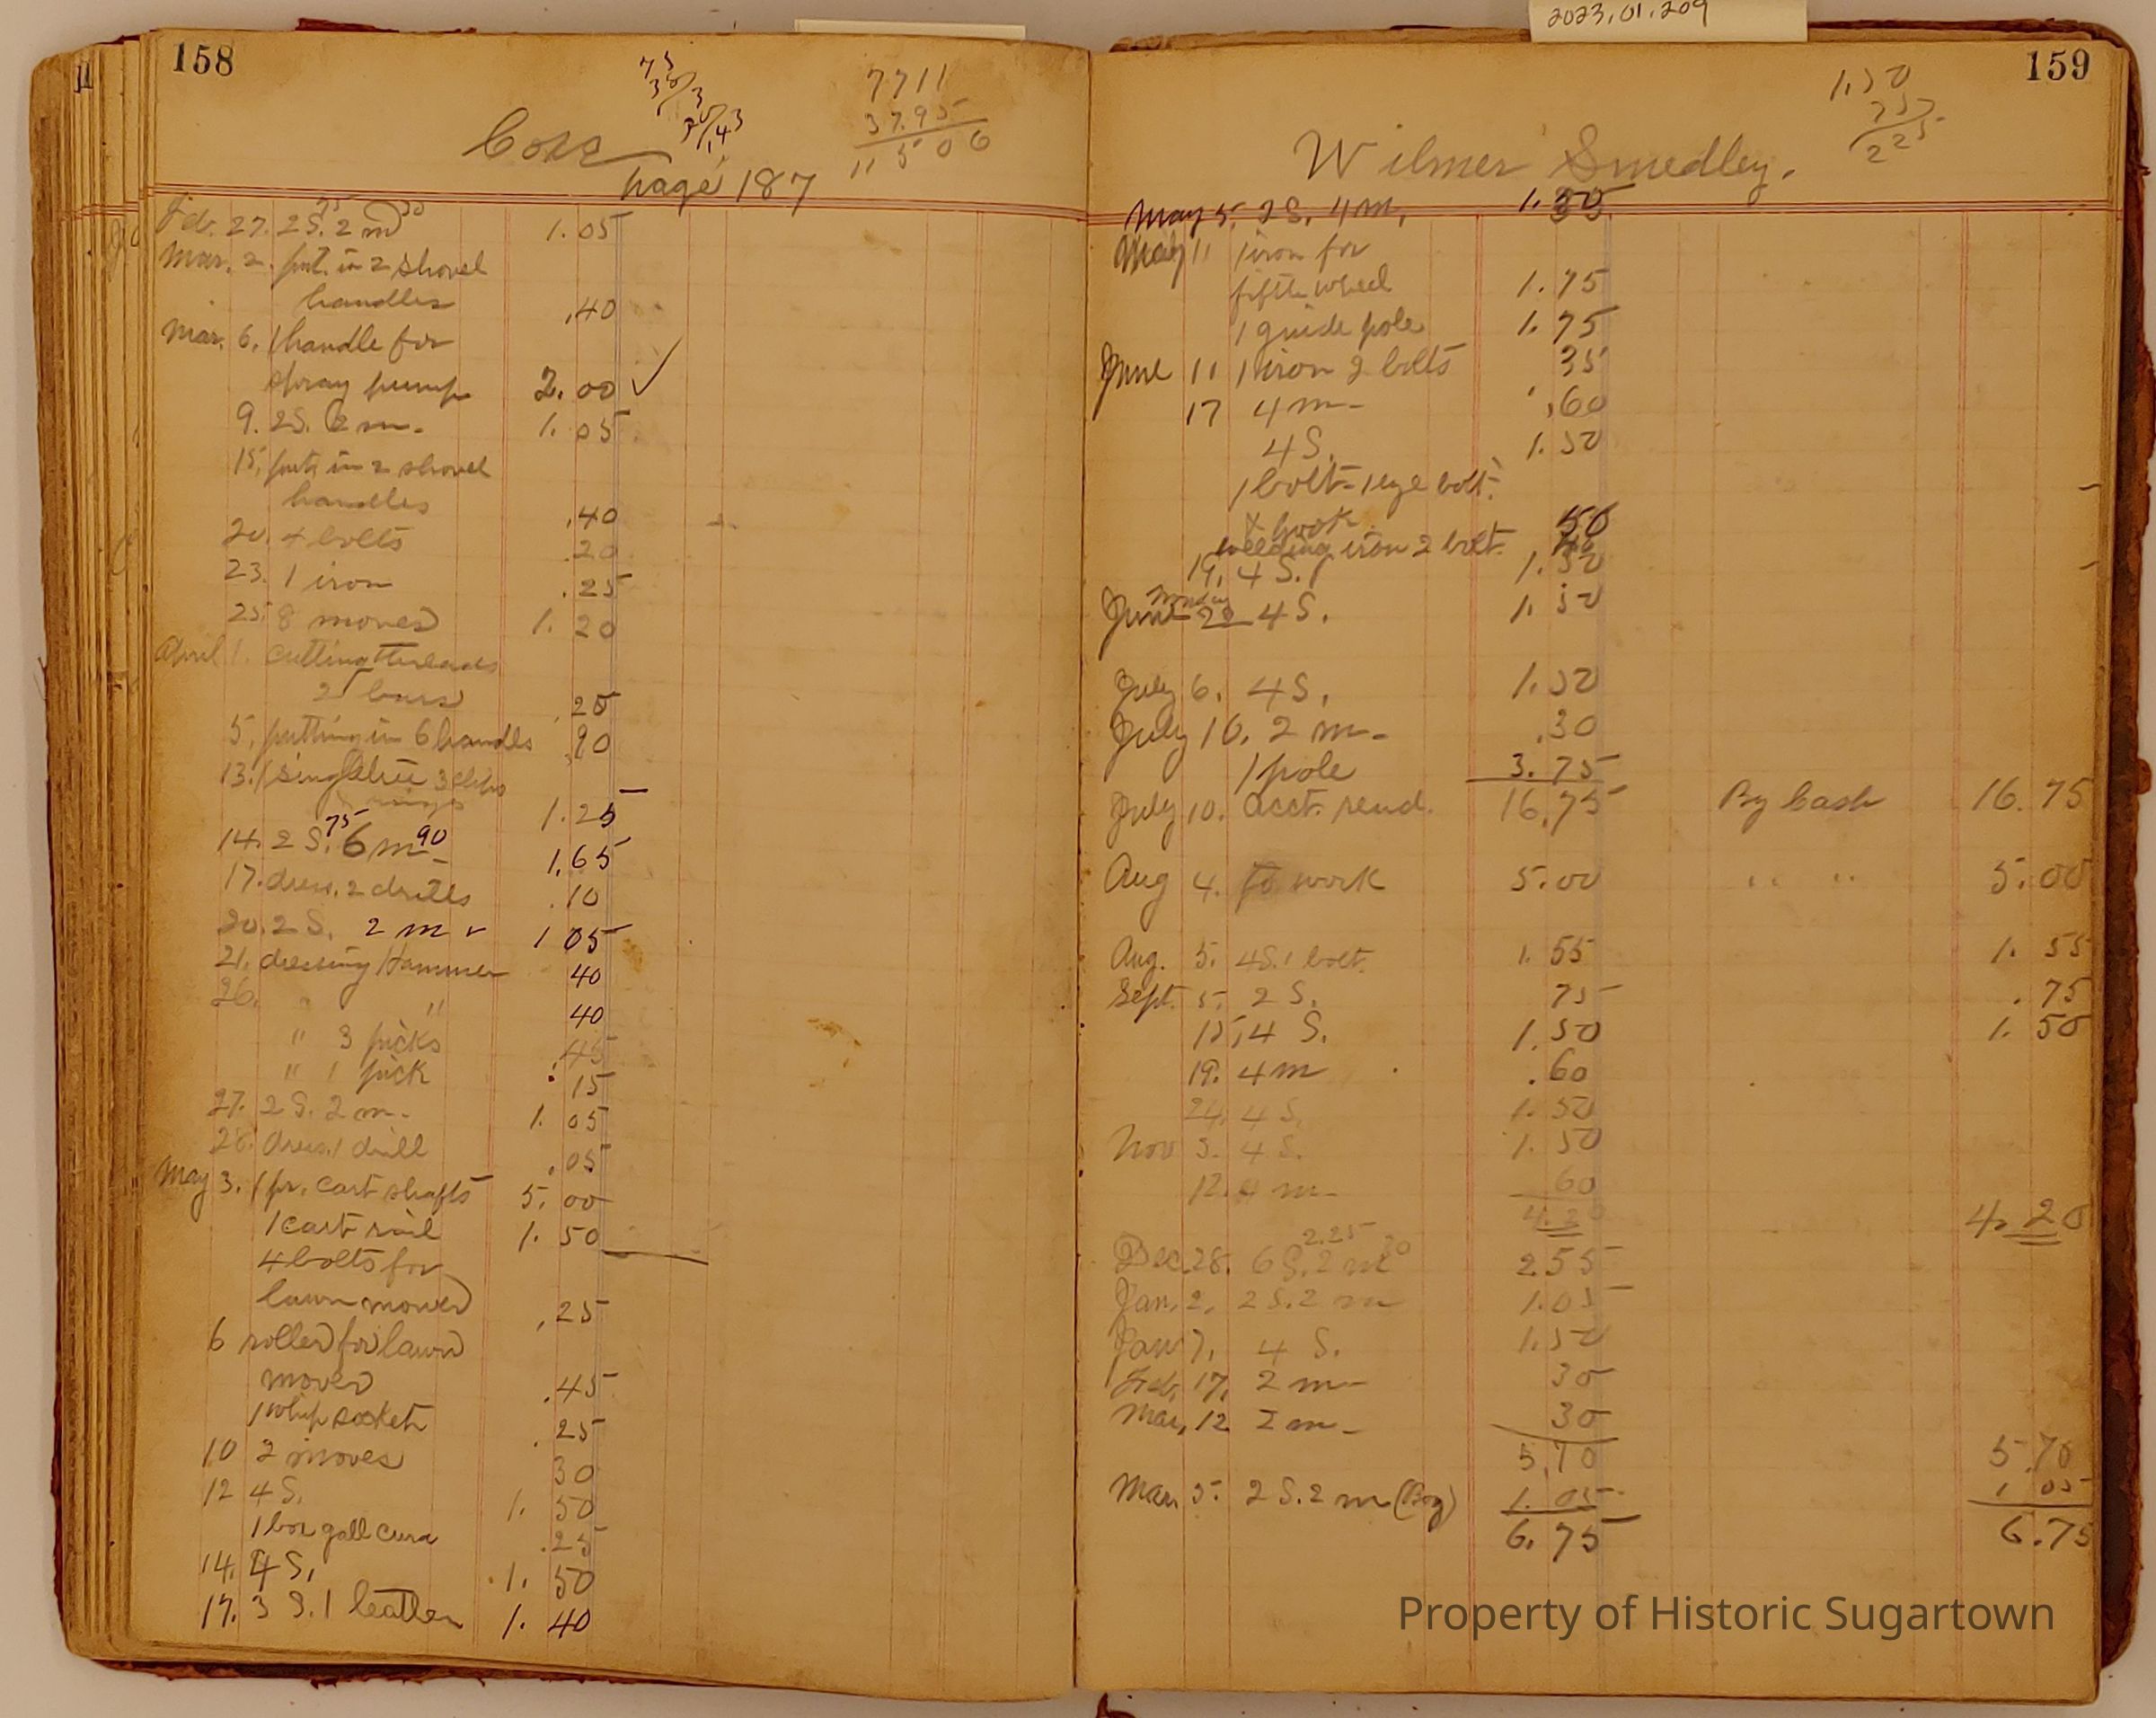 2023.01.209
158
7711
37.95
11506
page 187
Feb. 27. 2 S. 75 2 m 30 1.05
Mar. 2. put in 2 shovel
handles .40
Mar. 6. 1 handle for
spray pump 2.00 ✓
9. 2 S. 2 m. 1.05
15. put in 2 shovel
handles .40
20. 4 bolts .20
23. 1 iron .25
25. 8 moves 1.20
April 1. cutting threads
2 bars .25
5. putting in 6 handles .90
13. 1 singletree 3 clips
rings 1.25
14. 2 S. 75 6 m 90 1.65
17. dress. 2 drills .10
20. 2 S. 2 m 1 05
21. dressing Hammer 40
26. " " 40
" 3 picks .45
" 1 pick .15
27. 2 S. 2 m. 1.05
28. dress. 1 drill .05
May 3. 1 pr. cart shafts 5.00
1 cart rail 1.50
4 bolts for
lawn mower .25
6 roller for lawn
mower .45
1 whip socket .25
10 2 moves 30
12 4 S. 1.50
1 box gall cure .25
14. 4 S. 1.50
17. 3 S. 1 leather 1.40
159
1.50
75
2 25
Wilmer Smedley.
May 5. 2 S. 4 m.
May 11 1 iron for
fifth wheel 1.75
1 guide pole 1.75
June 11 1 iron 2 bolts 35
17 4 m .60
4 S. 1.50
1 bolt - 1 eye bolt.
& hook 50
welding iron 2 bolt.
19. 4 S. 1.50
June 22 4 S. 1.50
July 6. 4 S. 1.50
July 10. 2 m. .30
1 pole 3.75
July 10. acct. rend. 16.75 By Cash 16.75
Aug 4. To work 5.00 " " 5.00
Aug. 5. 4 S. 1 bolt. 1.55 1.55
Sept. 5. 2 S. 75 .75
15. 4 S. 1.50 1.50
19. 4 m .60
24. 4 S. 1.50
Nov 3. 4 S. 1.50
12. 4 m 60
4.20 4.20
Dec. 28. 6 S. 2.25 2 m 30 2.55
Jan. 2. 2 S. 2 m 1.05
Jan 7. 4 S. 1.50
Feb. 17. 2 m 30
Mar. 12 2 m 30
5.70 5.70
Mar. 5. 2 S. 2 m (Boy) 1.05 1 05
6.75 6.75
Property of Historic Sugartown